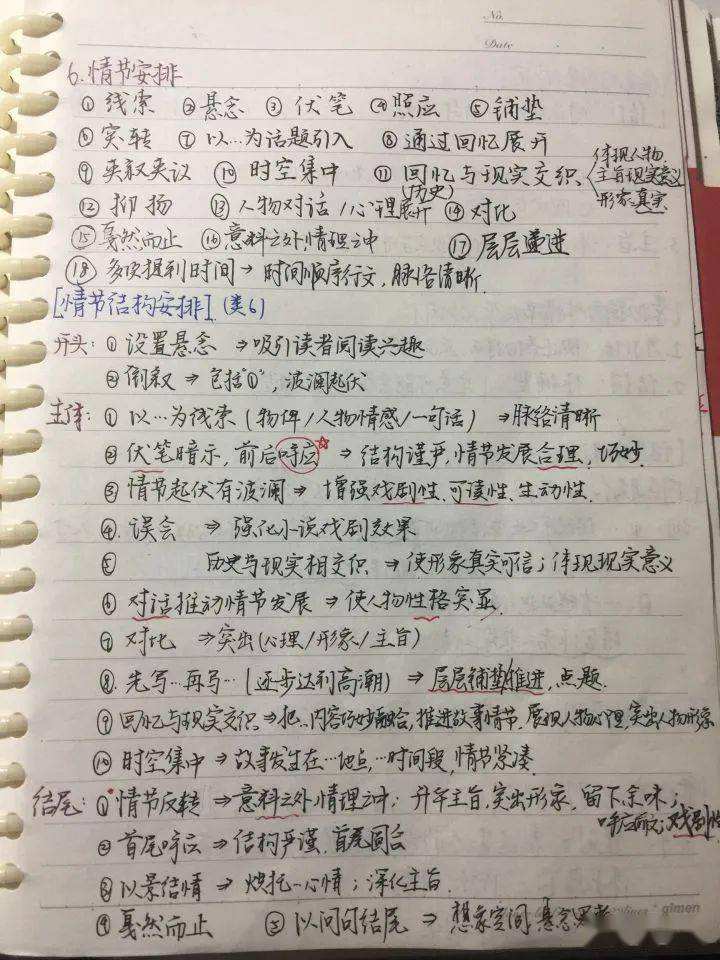 No.
Date
6.情节安排
①线索 ②悬念 ③伏笔 ④照应 ⑤铺垫
⑥突转 ⑦以…为话题引入 ⑧通过回忆展开
⑨夹叙夹议 ⑩时空集中 ⑪回忆与现实交织 体现人物
(历史) 主旨现实意义
形象真实
⑫抑扬 ⑬人物对话/心理展开 ⑭对比
⑮戛然而止 ⑯意料之外情理之中 ⑰层层递进
⑱多次提到时间→时间顺序行文,脉络清晰.
[情节结构安排](类6)
开头:①设置悬念⇒吸引读者阅读兴趣
②倒叙⇒包括"①",波澜起伏
主体:①以…为线索(物件/人物情感/一句话)⇒脉络清晰
②伏笔暗示,前后呼应☆⇒结构谨严,情节发展合理,巧妙.
③情节起伏有波澜⇒增强戏剧性.可读性.生动性.
④.误会⇒强化小说戏剧效果
⑤历史与现实相交织→使形象真实可信;体现现实意义
⑥对话推动情节发展⇒使人物性格突显.
⑦对比⇒突出(心理/形象/主旨)
⑧.先写…再写…(逐步达到高潮)⇒层层铺垫/推进,点题.
⑨回忆与现实交织⇒把…内容巧妙融合,推进故事情节.展现人物心理,突出人物形象
⑩时空集中⇒故事发生在…地点,…时间段,情节紧凑.
结尾:①情节反转⇒意料之外.情理之中;升华主旨,突出形象,留下余味;
呼应前文;戏剧性
②首尾呼应⇒结构严谨,首尾圆合
③以景结情⇒烘托…心情;深化主旨.
④戛然而止 ⑤以问句结尾⇒想象空间,悬念思考
qimen